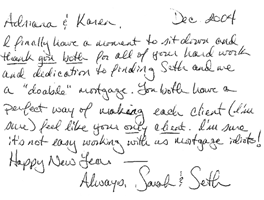 Adriana & Karen, Dec 2004
I finally have a moment to sit down and
thank you both for all of your hard work
and dedication to finding Seth and me
a "doable" mortgage. You both have a
perfect way of making each client (I'm
sure) feel like your only client. I'm sure
it's not easy working with us mortgage idiots!
Happy New Year —
Always, Sarah & Seth